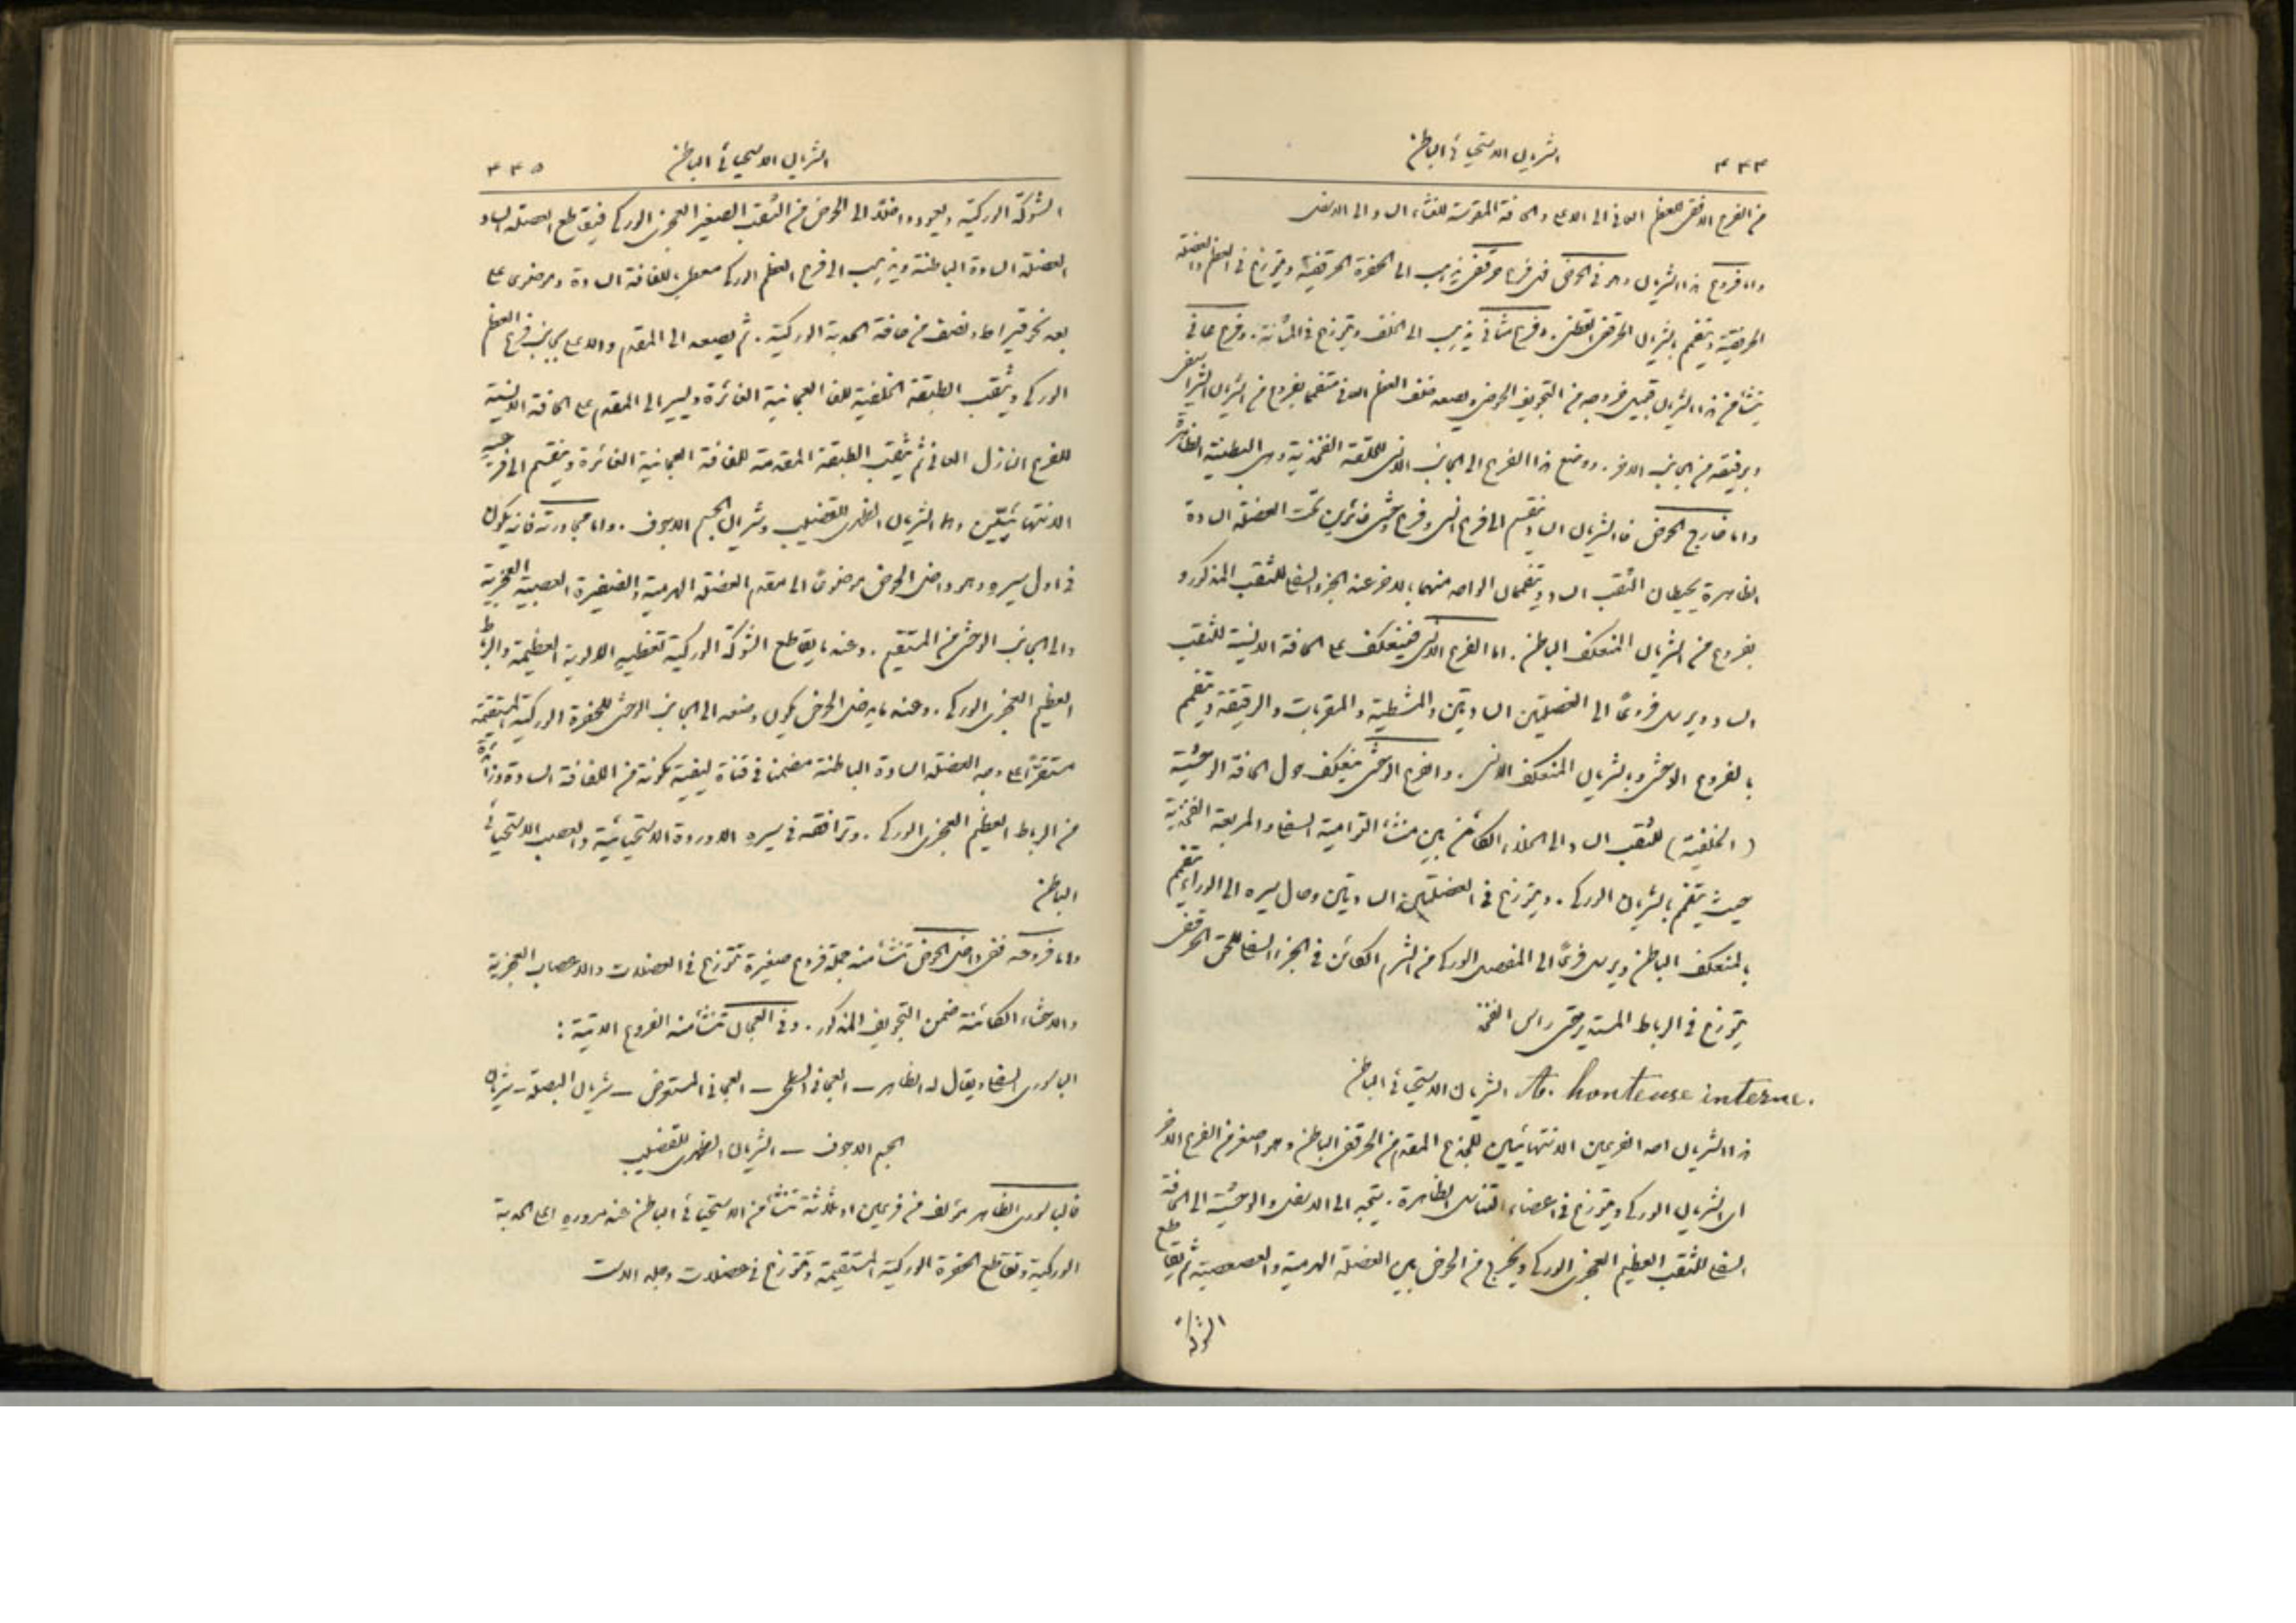 ٤٣٤
الشريان الاستحيائي الباطن
من الفرع الافقي للعظم العاني الى الاعلى والحافة المقوسة للغشاء الساد الى الاسفل
واما فروع هذا الشريان وهو في الحوض فهي فرع حرقفي يذهب الى الحفرة الحرقفية ويتوزع في العظم والعضلة
الحرقفية ويتفمم بالشريان الحرقفي القطني. وفرع مثاني يذهب الى الخلف ويتوزع في المثانة. وفرع عاني
ينشأ من هذا الشريان قبيل خروجه من التجويف الحوضي ويصعد خلف العظم العاني متفمما بفروع من الشريان الشراسيفي
وبرفيقه من الجانب الاخر. ووضع هذا الفرع الى الجانب الانسي للحلقة الفخذية وهي البطنية الظاهرة
واما خارج الحوض فالشريان الساد ينقسم الى فرع انسي وفرع وحشي غائرين تحت العضلة السادة
الظاهرة يحيطان الثقب الساد ويتفممان الواحد منهما بالاخر عند الجزء السفلي للثقب المذكور و
بفروع من الشريان المنعكف الباطن. اما الفرع الانسي فينعكف على الحافة الانسية للثقب
الساد ويرسل فروعًا الى العضلتين السادتين والمشطية والمقربات والرقيقة ويتفمم
بالفروع الوحشي وبالشريان المنعكف الانسي. والفرع الوحشي ينعكف حول الحافة الوحشية
(الخلفية) للثقب الساد الى الخلاء الكائن بين منشأ التوامية السفلى والمربعة الفخذية
حيث يتفمم بالشريان الوركي. ويتوزع في العضلتين السادتين وحال سيره الى الوراء يتفمم
بالمنعكف الباطن ويرسل فرعًا الى المفصل الوركي من الشرم الكائن في الجزء السفلي للحق الحرقفي
يتوزع في الرباط المستدير حتى راس الفخذ
A. honteuse interne. الشريان الاستحيائي الباطن
هذا الشريان احد الفرعين الانتهائيين للجذع المقدم من الحرقفي الباطن وهو اصغر من الفرع الاخر
اي الشريان الوركي ويتوزع في اعضاء التناسل الظاهرة. يتجه الى الاسفل والوحشية الى الحافة
السفلى للثقب العظيم العجزي الوركي ويخرج من الحوض بين العضلة الهرمية والعصعصية ثم يقاطع
الشوكة
الشريان الاستحيائي الباطن
٤٣٥
الشوكة الوركية ويعود داخلا الى الحوض من الثقب الصغير العجزي الوركي فيقاطع العضلة الساد
العضلة السادة الباطنة ويذهب الى فرع العظم الوركي مغطى باللفافة السادة وموضوع على
بعد نحو قيراط ونصف من حافة الحدبة الوركية. ثم يصعد الى المقدم والاعلى بجانب فرع العظم
الوركي ويثقب الطبقة الخلفية للفافة العجانية الغائرة ويسير الى المقدم على الحافة الانسية
للفرع النازل العاني ثم يثقب الطبقة المقدمة للفافة العجانية الغائرة وينقسم الى فرعيه
الانتهائيين وهما الشريان الظهري للقضيب وشريان الجسم الاجوف. واما مجاورته فانه يكون
في اول سيره وهو داخل الحوض موضوعًا الى مقدم العضلة الهرمية والضفيرة العصبية العجزية
والى الجانب الوحشي من المستقيم. وعندما يقاطع الشوكة الوركية تغطيه الالوية العظيمة والرباط
العظيم العجزي الوركي. وعندما يدخل الحوض يكون وضعه الى الجانب الوحشي للحفرة الوركية المستقيمة
مستقرًا على وجه العضلة السادة الباطنة مضمنا في قناة ليفية مكونة من اللفافة السادة وزائدة
من الرباط العظيم العجزي الوركي. وترافقه في سيره الاوردة الاستحيائية والعصب الاستحيائي
الباطن
واما فروعه ففي داخل الحوض تنشأ منه جملة فروع صغيرة تتوزع في العضلات والاعصاب العجزية
والاحشاء الكائنة ضمن التجويف المذكور. وفي العجان تنشأ منه الفروع الاتية:
الباسوري السفلي ويقال له الظاهر – العجاني السطحي – العجاني المستعرض – شريان البصلة – شريان
الجسم الاجوف – الشريان الظهري للقضيب
فالباسوري الظاهر مؤلف من فرعين او ثلاثة تنشأ من الاستحيائي الباطن عند مروره اعلى الحدبة
الوركية وتقاطع الحفرة الوركية المستقيمة وتتوزع في عضلات وجلد الاست